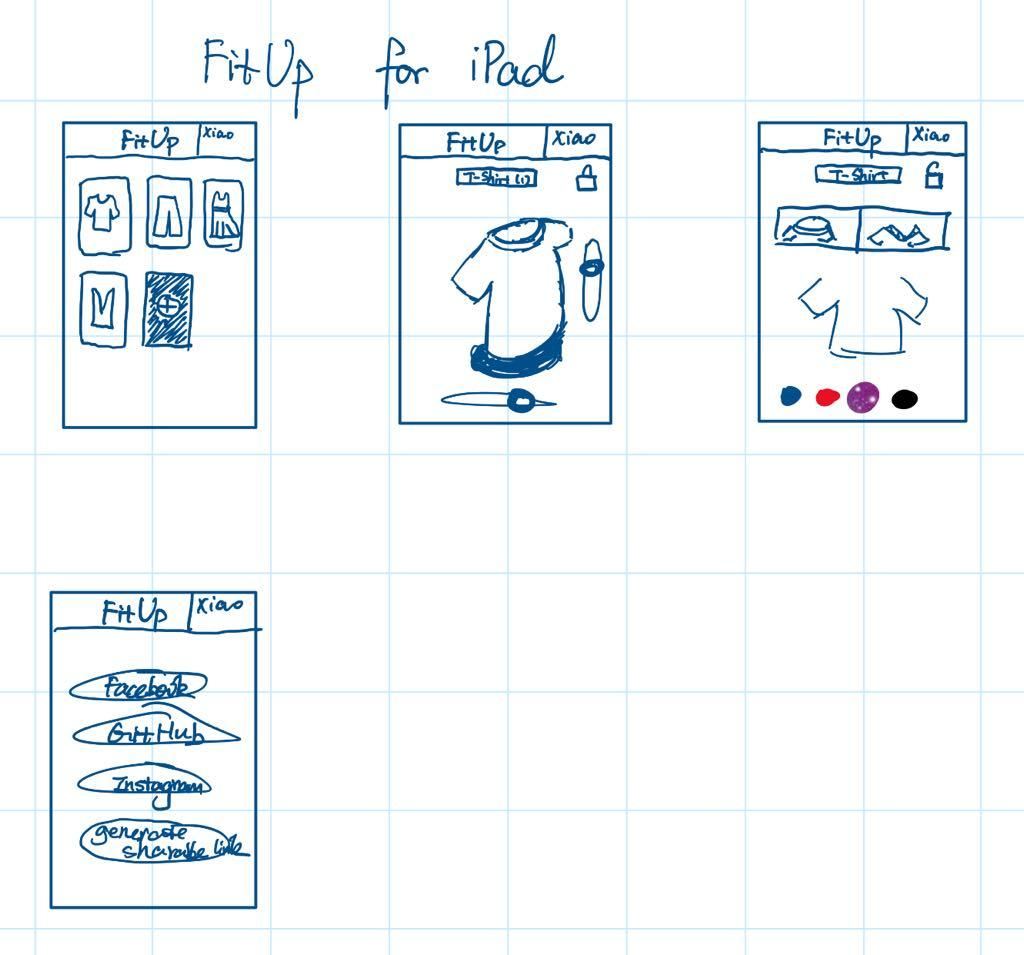 FitUp for iPad
FitUp Xiao
FitUp Xiao
T-Shirt (1)
FitUp Xiao
T-Shirt
FitUp Xiao
Facebook
GitHub
Instagram
generate
link